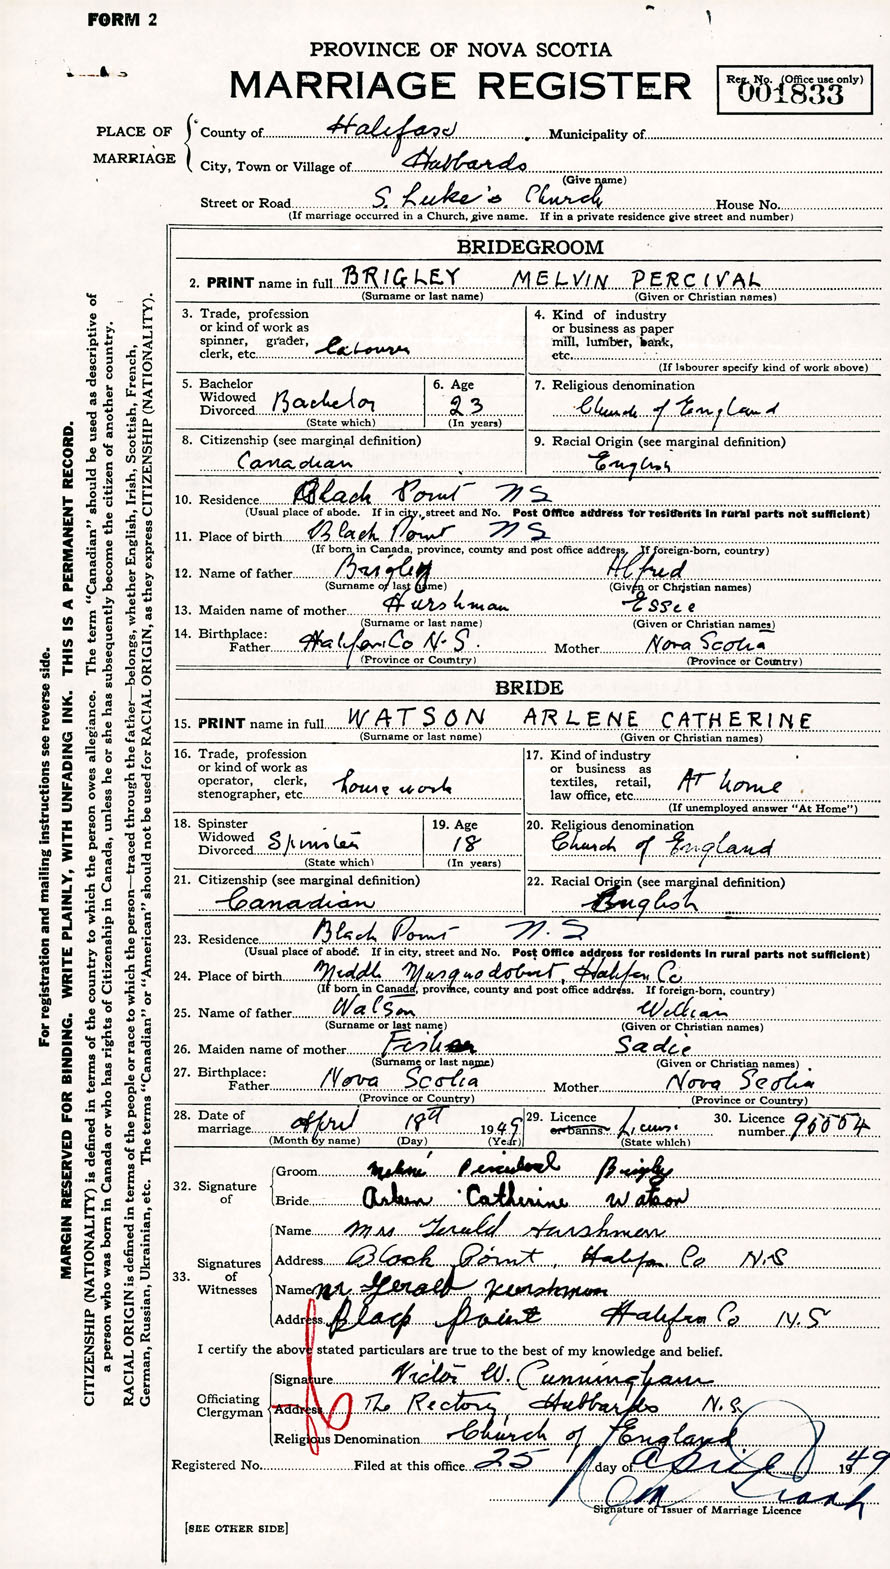 FORM 2
PROVINCE OF NOVA SCOTIA
MARRIAGE REGISTER
Reg. No. (Office use only)
001833
PLACE OF MARRIAGE
County of Halifax Municipality of
City, Town or Village of Hubbards
(Give name)
Street or Road S. Luke's Church House No.
(If marriage occurred in a Church, give name. If in a private residence give street and number)
BRIDEGROOM
2. PRINT name in full BRIGLEY MELVIN PERCIVAL
(Surname or last name) (Given or Christian names)
3. Trade, profession or kind of work as spinner, grader, clerk, etc. Labourer
4. Kind of industry or business as paper mill, lumber, bank, etc.
(If labourer specify kind of work above)
5. Bachelor Widowed Divorced Bachelor
(State which)
6. Age 23
(In years)
7. Religious denomination
Church of England
8. Citizenship (see marginal definition)
Canadian
9. Racial Origin (see marginal definition)
English
10. Residence Black Point NS
(Usual place of abode. If in city, street and No. Post Office address for residents in rural parts not sufficient)
11. Place of birth Black Point NS
(If born in Canada, province, county and post office address. If foreign-born, country)
12. Name of father Brigley Alfred
(Surname or last name) (Given or Christian names)
13. Maiden name of mother Hurshman Essie
(Surname or last name) (Given or Christian names)
14. Birthplace:
Father Halifax Co N.S. Mother Nova Scotia
(Province or Country) (Province or Country)
BRIDE
15. PRINT name in full WATSON ARLENE CATHERINE
(Surname or last name) (Given or Christian names)
16. Trade, profession or kind of work as operator, clerk, stenographer, etc. housework
17. Kind of industry or business as textiles, retail, law office, etc. At home
(If unemployed answer "At Home")
18. Spinster Widowed Divorced Spinster
(State which)
19. Age 18
(In years)
20. Religious denomination
Church of England
21. Citizenship (see marginal definition)
Canadian
22. Racial Origin (see marginal definition)
English
23. Residence Black Point N.S
(Usual place of abode. If in city, street and No. Post Office address for residents in rural parts not sufficient)
24. Place of birth Middle Musquodoboit, Halifax Co
(If born in Canada, province, county and post office address. If foreign-born, country)
25. Name of father Watson William
(Surname or last name) (Given or Christian names)
26. Maiden name of mother Sadie
(Surname or last name) (Given or Christian names)
27. Birthplace:
Father Nova Scotia Mother Nova Scotia
(Province or Country) (Province or Country)
28. Date of marriage April 18th 1949
(Month by name) (Day) (Year)
29. Licence or banns
(State which)
30. Licence number
32. Signature of
Groom Percival Brigley
Bride Arlene Catherine Watson
33. Signatures of Witnesses
Name Mrs Gerald Hurshman
Address Black Point, Halifax Co N.S
Name Mr Gerald Hurshman
Address Black Point Halifax Co N.S
I certify the above stated particulars are true to the best of my knowledge and belief.
Officiating Clergyman
Signature Victor W. Cunningham
Address The Rectory Hubbards N.S.
Religious Denomination Church of England
Registered No. Filed at this office 25 day of April 1949
Signature of Issuer of Marriage Licence
[SEE OTHER SIDE]
For registration and mailing instructions see reverse side.
MARGIN RESERVED FOR BINDING. WRITE PLAINLY, WITH UNFADING INK. THIS IS A PERMANENT RECORD.
CITIZENSHIP (NATIONALITY) is defined in terms of the country to which the person owes allegiance. The term "Canadian" should be used as descriptive of
a person who was born in Canada or who has rights of Citizenship in Canada, unless he or she has subsequently become the citizen of another country.
RACIAL ORIGIN is defined in terms of the people or race to which the person—traced through the father—belongs, whether English, Irish, Scottish, French,
German, Russian, Ukrainian, etc. The terms "Canadian" or "American" should not be used for RACIAL ORIGIN, as they express CITIZENSHIP (NATIONALITY).